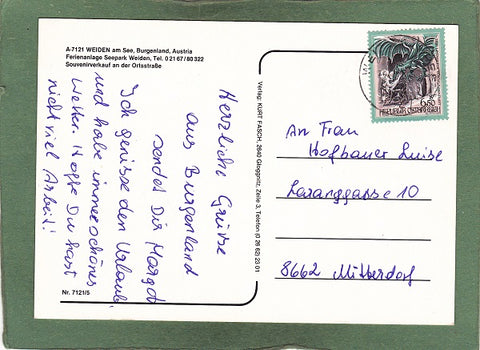 A-7121 WEIDEN am See, Burgenland, Austria
Ferienanlage Seepark Weiden, Tel. 0 21 67 / 80 322
Souvenirverkauf an der Ortsstraße
Herzliche Grüsse
aus Burgenland
sendet Dir Margot
Ich geniesse den Urlaub
und habe immer schönes
Wetter. Hoffe Du hast
nicht viel Arbeit!
Nr. 7121/5
Verlag: KURT FASCH, 2640 Gloggnitz, Zeile 3, Telefon (0 26 62) 23 01
6.50
REPUBLIK ÖSTERREICH
An Frau
Hofbauer Luise
Lazarettgasse 10
8662 Mitterdorf